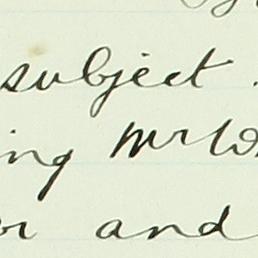 subject.
ing Mr W
or and